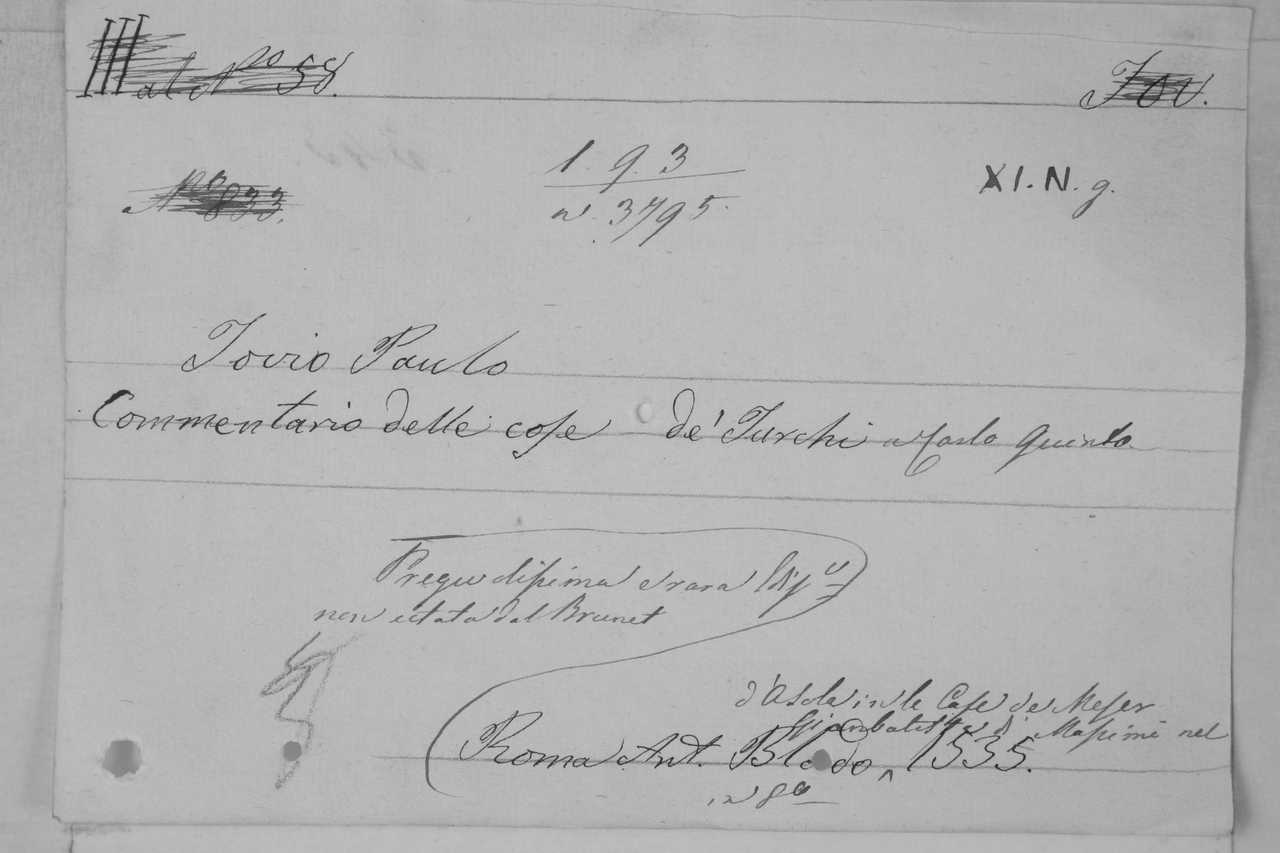 III al N.º 58.
Jov.
Nº 833.
1. 9. 3
n. 3795.
XI. N. g.
Jovio Paulo
Commentario delle cose de' Turchi a Carlo Quinto
non citata dal Brunet
d'Asola in le Case de Meser
Gianbatista di Massimi nel
Roma Ant. Blado 1535.
in 8º